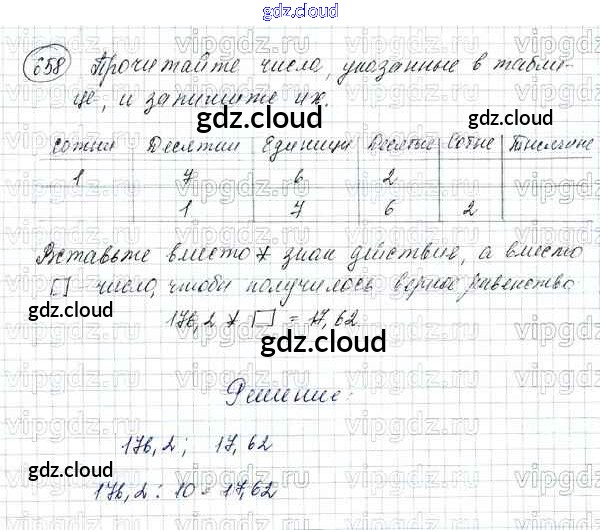 gdz.cloud
658 Прочитайте числа, указанные в табли-
це, и запишите их.
gdz.cloud
gdz.cloud
Сотни Десятки Единицы Десятые Сотые Тысячные
1 7 6 2
1 7 6 2
Вставьте вместо * знак действие, а вместо
[] - число, чтобы получилось верное равенство
gdz.cloud
gdz.cloud
176,2 * [] = 17,62.
gdz.cloud
Решение:
gdz.cloud
176,2; 17,62
gdz.cloud
gdz.cloud
176,2 : 10 = 17,62